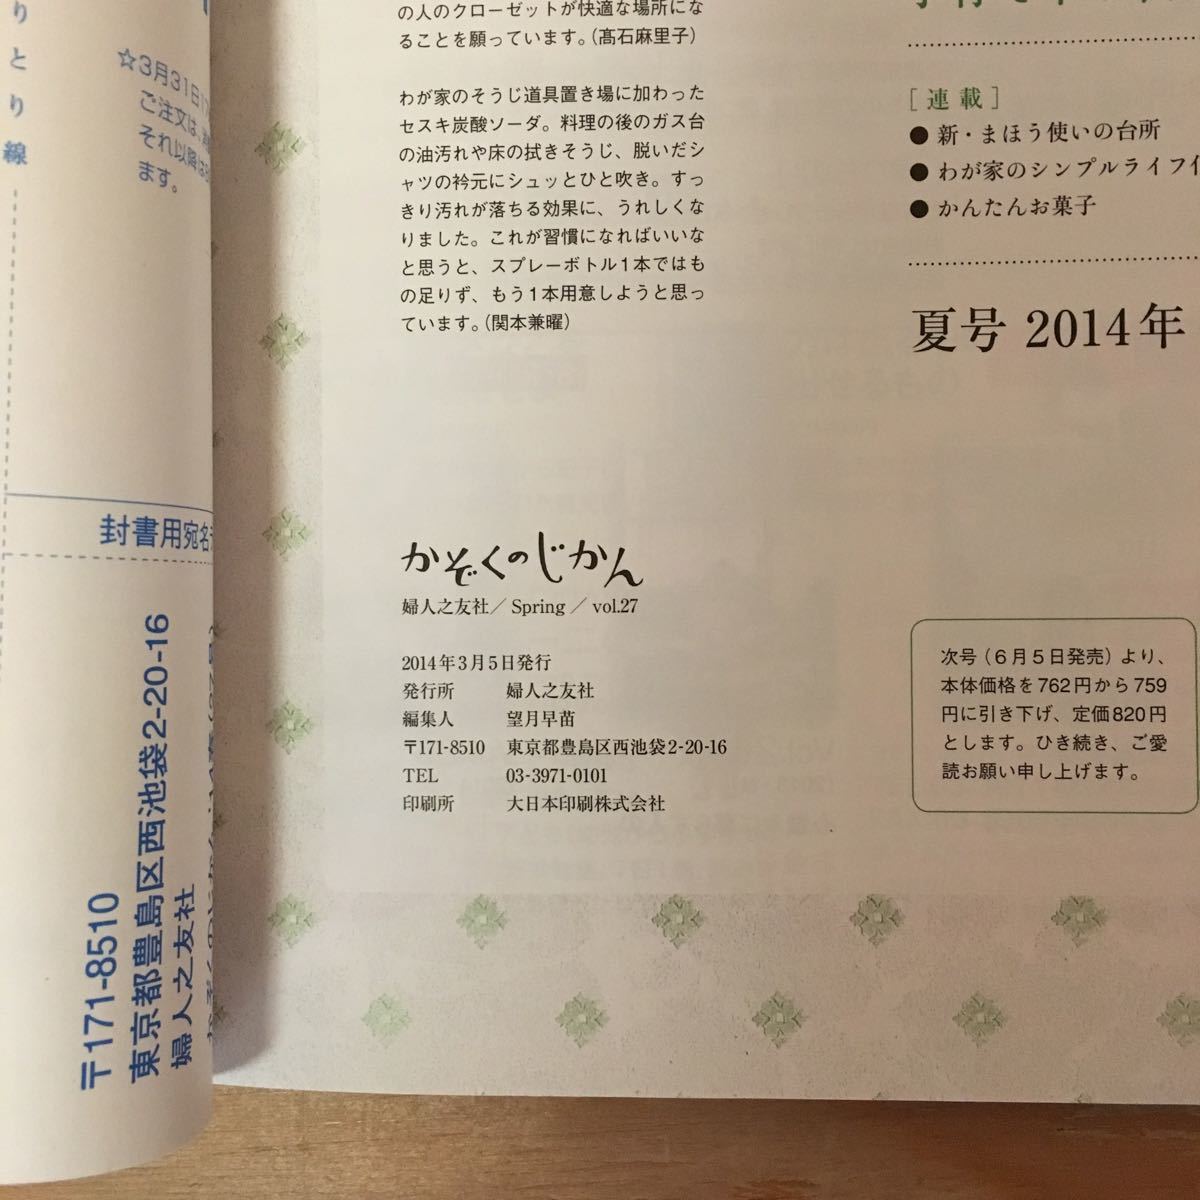 りとり線
☆3月31日
ご注文は、
それ以降は
ます。
封書用宛名
〒171-8510
東京都豊島区西池袋2-20-16
婦人之友社
の人のクローゼットが快適な場所にな
ることを願っています。(髙石麻里子)
わが家のそうじ道具置き場に加わった
セスキ炭酸ソーダ。料理の後のガス台
の油汚れや床の拭きそうじ、脱いだシ
ャツの衿元にシュッとひと吹き。すっ
きり汚れが落ちる効果に、うれしくな
りました。これが習慣になればいいな
と思うと、スプレーボトル1本ではも
の足りず、もう1本用意しようと思っ
ています。(関本兼曜)
かぞくのじかん
婦人之友社／Spring／vol.27
2014年3月5日発行
発行所 婦人之友社
編集人 望月早苗
〒171-8510 東京都豊島区西池袋2-20-16
TEL 03-3971-0101
印刷所 大日本印刷株式会社
［連載］
● 新・まほう使いの台所
● わが家のシンプルライフ
● かんたんお菓子
夏号 2014年
次号（6月5日発売）より、
本体価格を762円から759
円に引き下げ、定価820円
とします。ひき続き、ご愛
読お願い申し上げます。